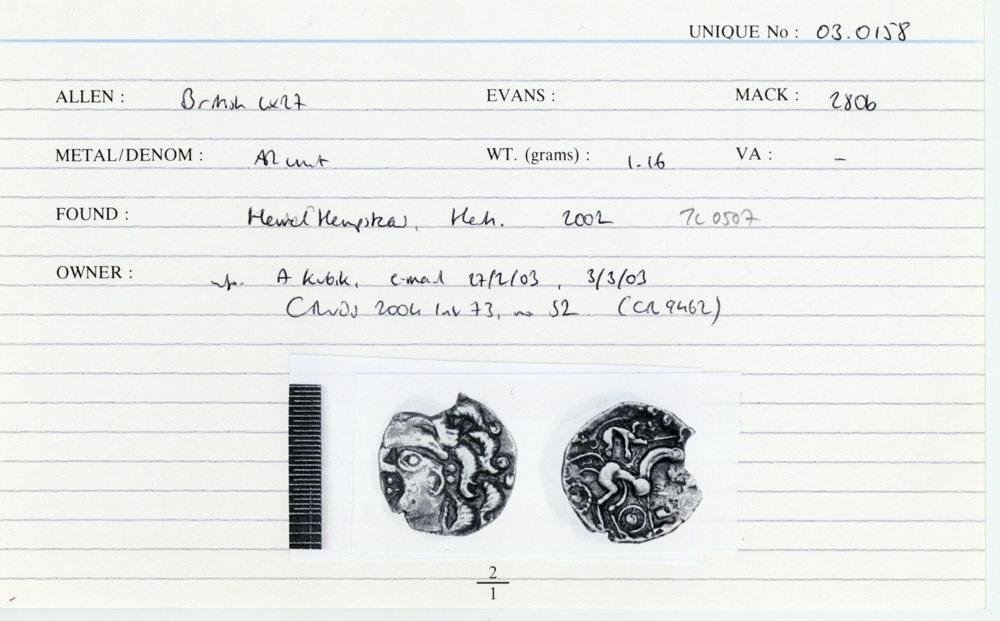 UNIQUE No : 03.0158
ALLEN : British LX27 EVANS : MACK : 280b
METAL/DENOM : AR unit WT. (grams) : 1.16 VA : –
FOUND : Hemel Hempstead, Herts. 2002 TL 0507
OWNER : A Kubik, e-mail 27/2/03, 3/3/03
2004 73, no 52 (CR 9462)
2
1